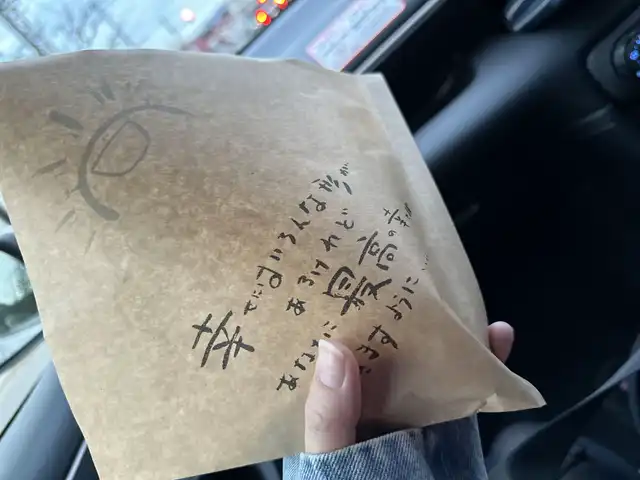 幸せにはいろんな形が
あるけれど
最高の幸が
あなたに
ますように…